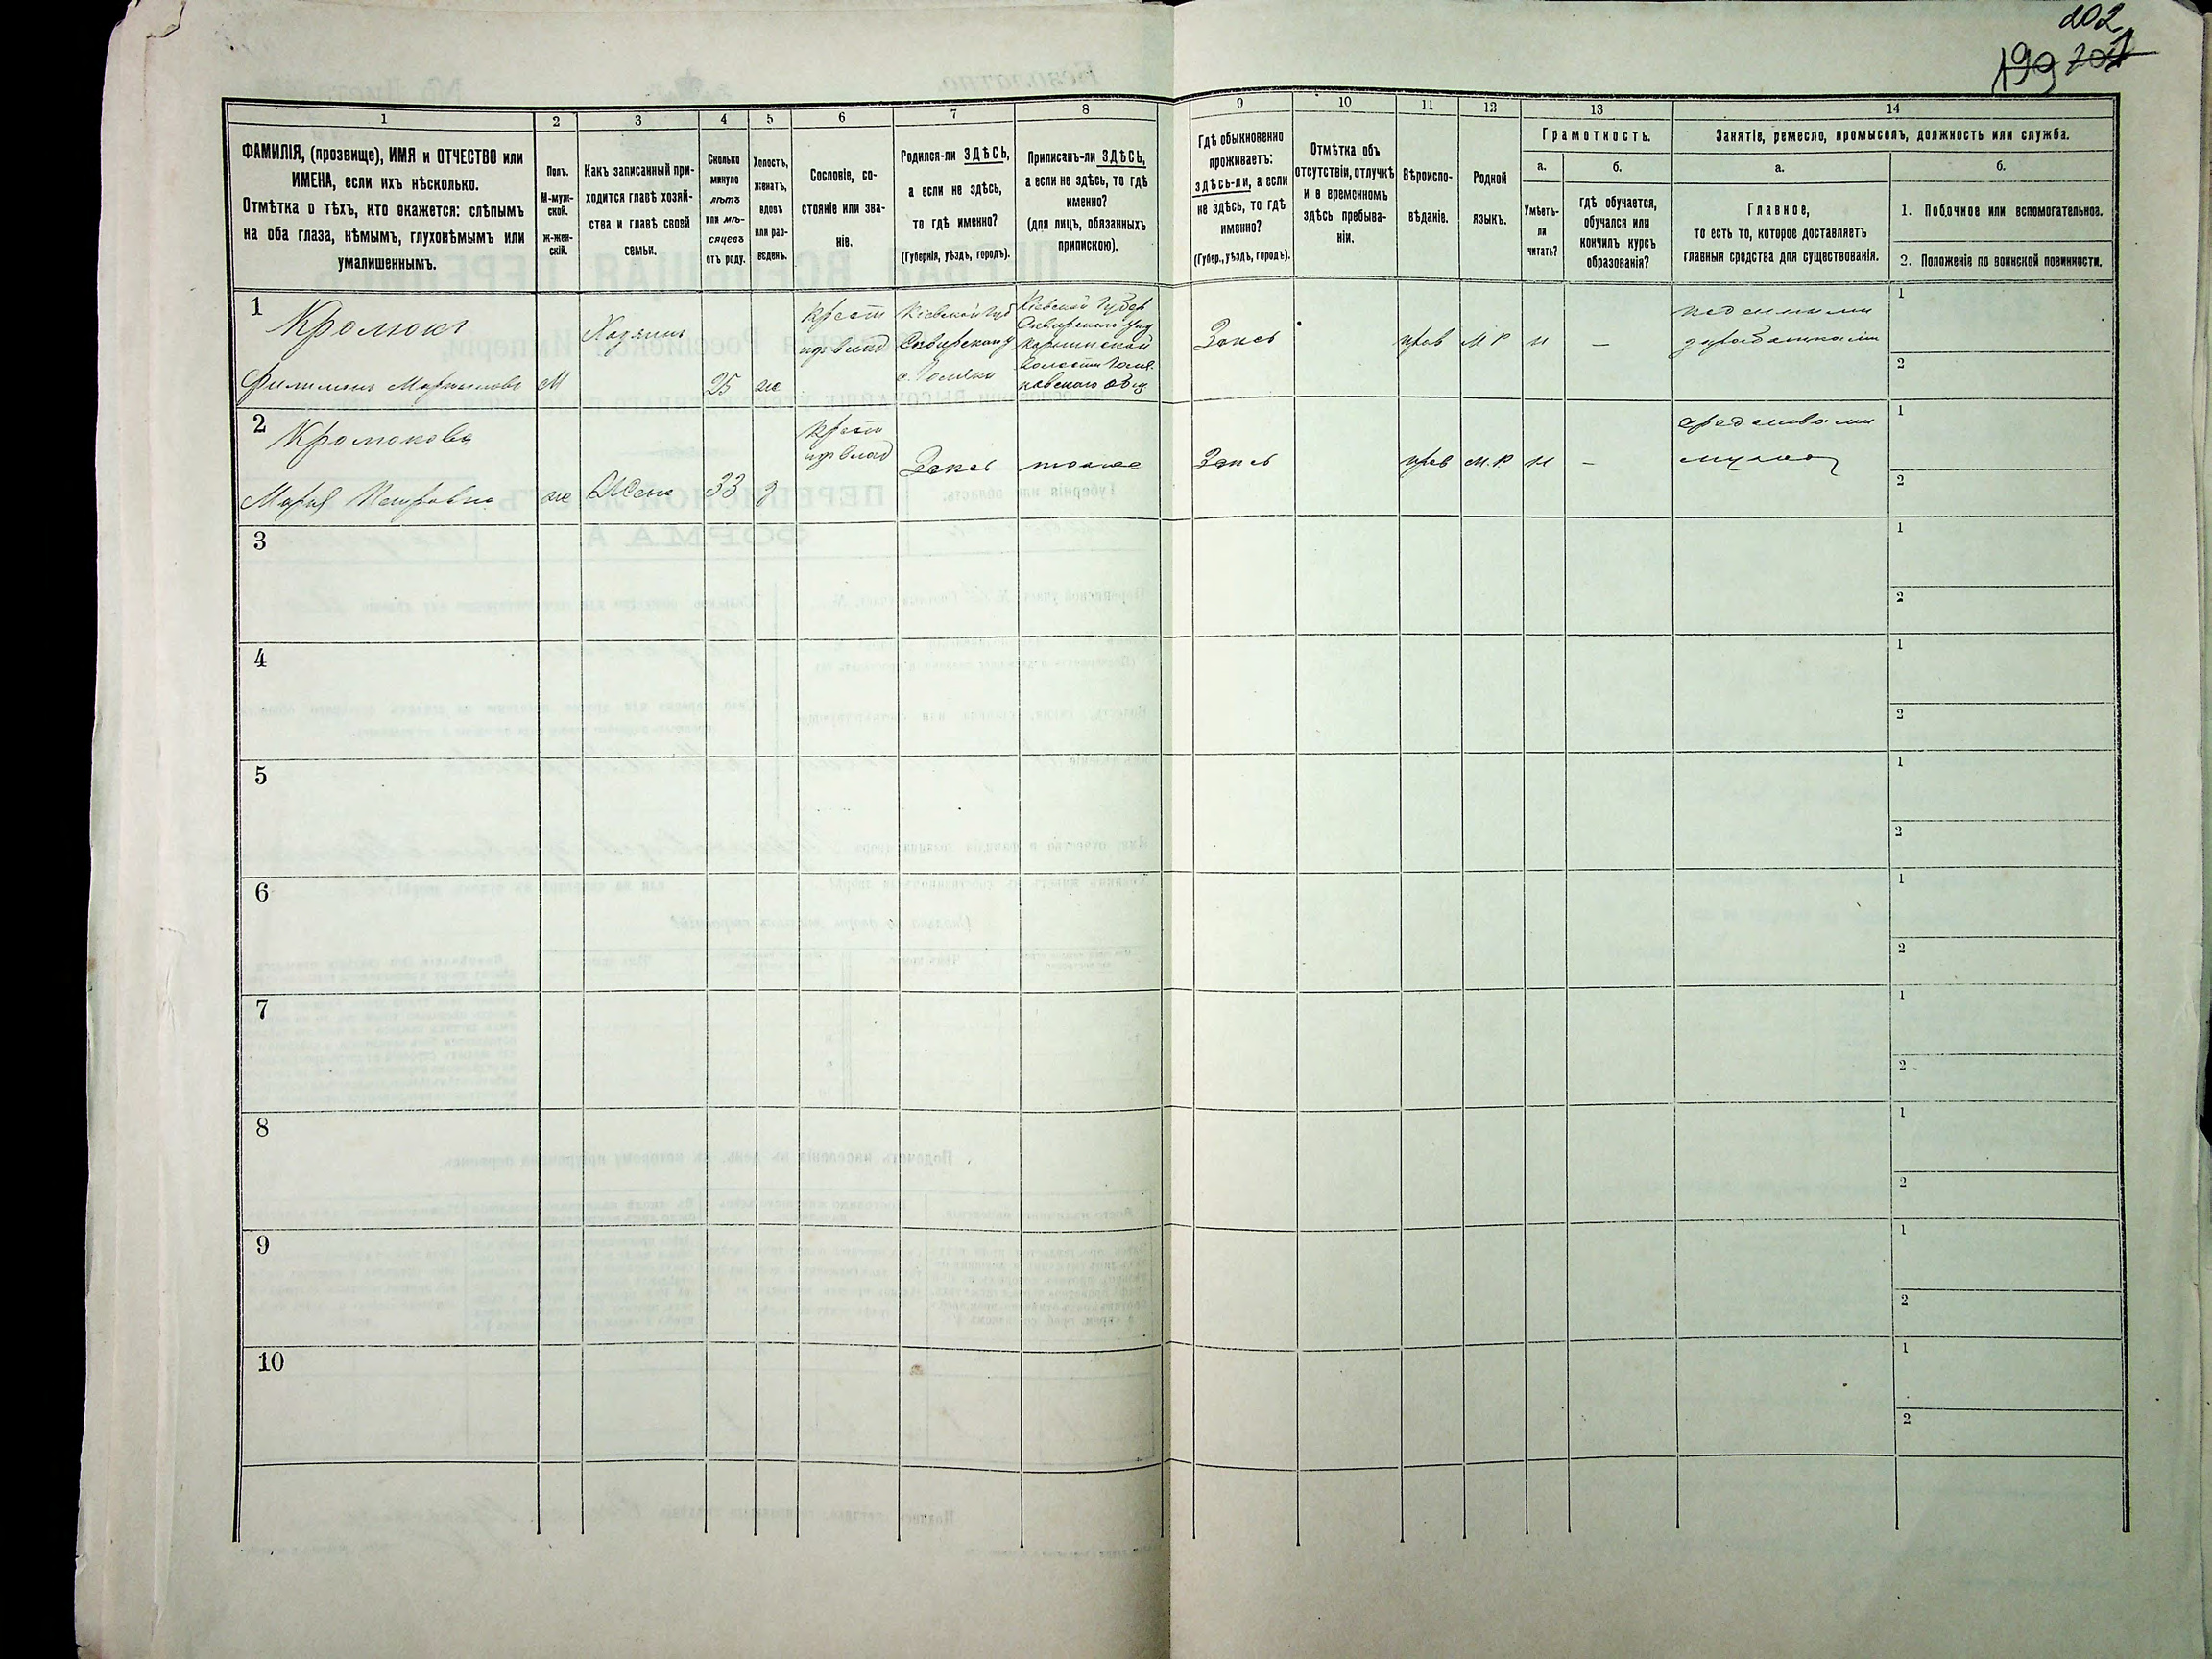 202
199 201
1
2
3
4
5
6
7
8
9
10
11
12
13
14
ФАМИЛІЯ, (прозвище), ИМЯ и ОТЧЕСТВО или
ИМЕНА, если ихъ нѣсколько.
Отмѣтка о тѣхъ, кто окажется: слѣпымъ
на оба глаза, нѣмымъ, глухонѣмымъ или
умалишеннымъ.
Полъ.
М-муж-
ской.
ж-жен-
скій.
Какъ записанный при-
ходится главѣ хозяй-
ства и главѣ своей
семьи.
Сколько
минуло
лѣтъ
или мѣ-
сяцевъ
отъ роду.
Холостъ,
женатъ,
вдовъ
или раз-
веденъ.
Сословіе, со-
стояніе или зва-
ніе.
Родился-ли ЗДѢСЬ,
а если не здѣсь,
то гдѣ именно?
(Губернія, уѣздъ, городъ).
Приписанъ-ли ЗДѢСЬ,
а если не здѣсь, то гдѣ
именно?
(для лицъ, обязанныхъ
припискою).
Гдѣ обыкновенно
проживаетъ:
здѣсь-ли, а если
не здѣсь, то гдѣ
именно?
(Губер., уѣздъ, городъ).
Отмѣтка объ
отсутствіи, отлучкѣ
и о временномъ
здѣсь пребыва-
ніи.
Вѣроиспо-
вѣданіе.
Родной
языкъ.
Грамотность.
а.
б.
Умѣетъ-
ли
читать?
гдѣ обучается,
обучался или
кончилъ курсъ
образованія?
Занятіе, ремесло, промыселъ, должность или служба.
а.
б.
Главное,
то есть то, которое доставляетъ
главныя средства для существованія.
1. Побочное или вспомогательное.
2. Положеніе по воинской повинности.
1
Филимонъ
М
Хозяинъ
25
ж
Крест
Кіевской губ
Сквирскаго у
Кіевской Губер
Сквирскаго
волости
прав
М. Р.
н
—
поденными
заработками
1
2
2
Марія Петровна
ж
Жена
33
з
Крест
тоже
прав
М. Р.
н
—
средствами
мужа
1
2
3
1
2
4
1
2
5
1
2
6
1
2
7
1
2
8
1
2
9
1
2
10
1
2